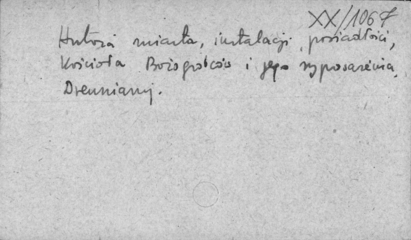 XX/1067
Historia miasta, instalacji, posiadłości,
Kościoła Bożogrobców i jego wyposażenia
Drewniany.